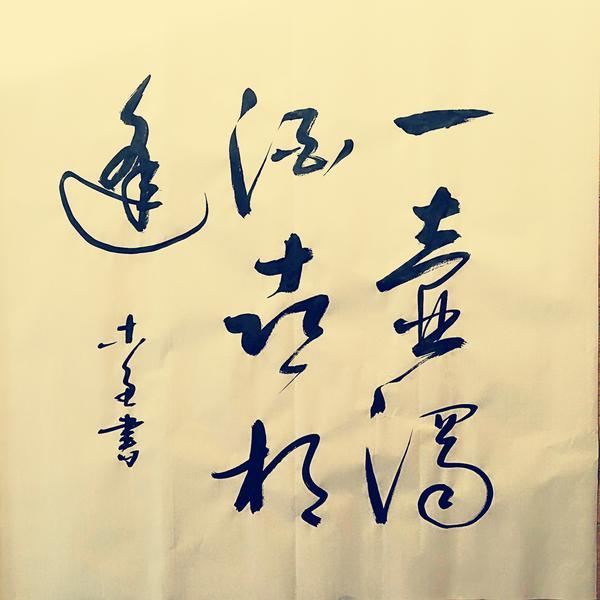 一壺濁
酒喜相
逢
書